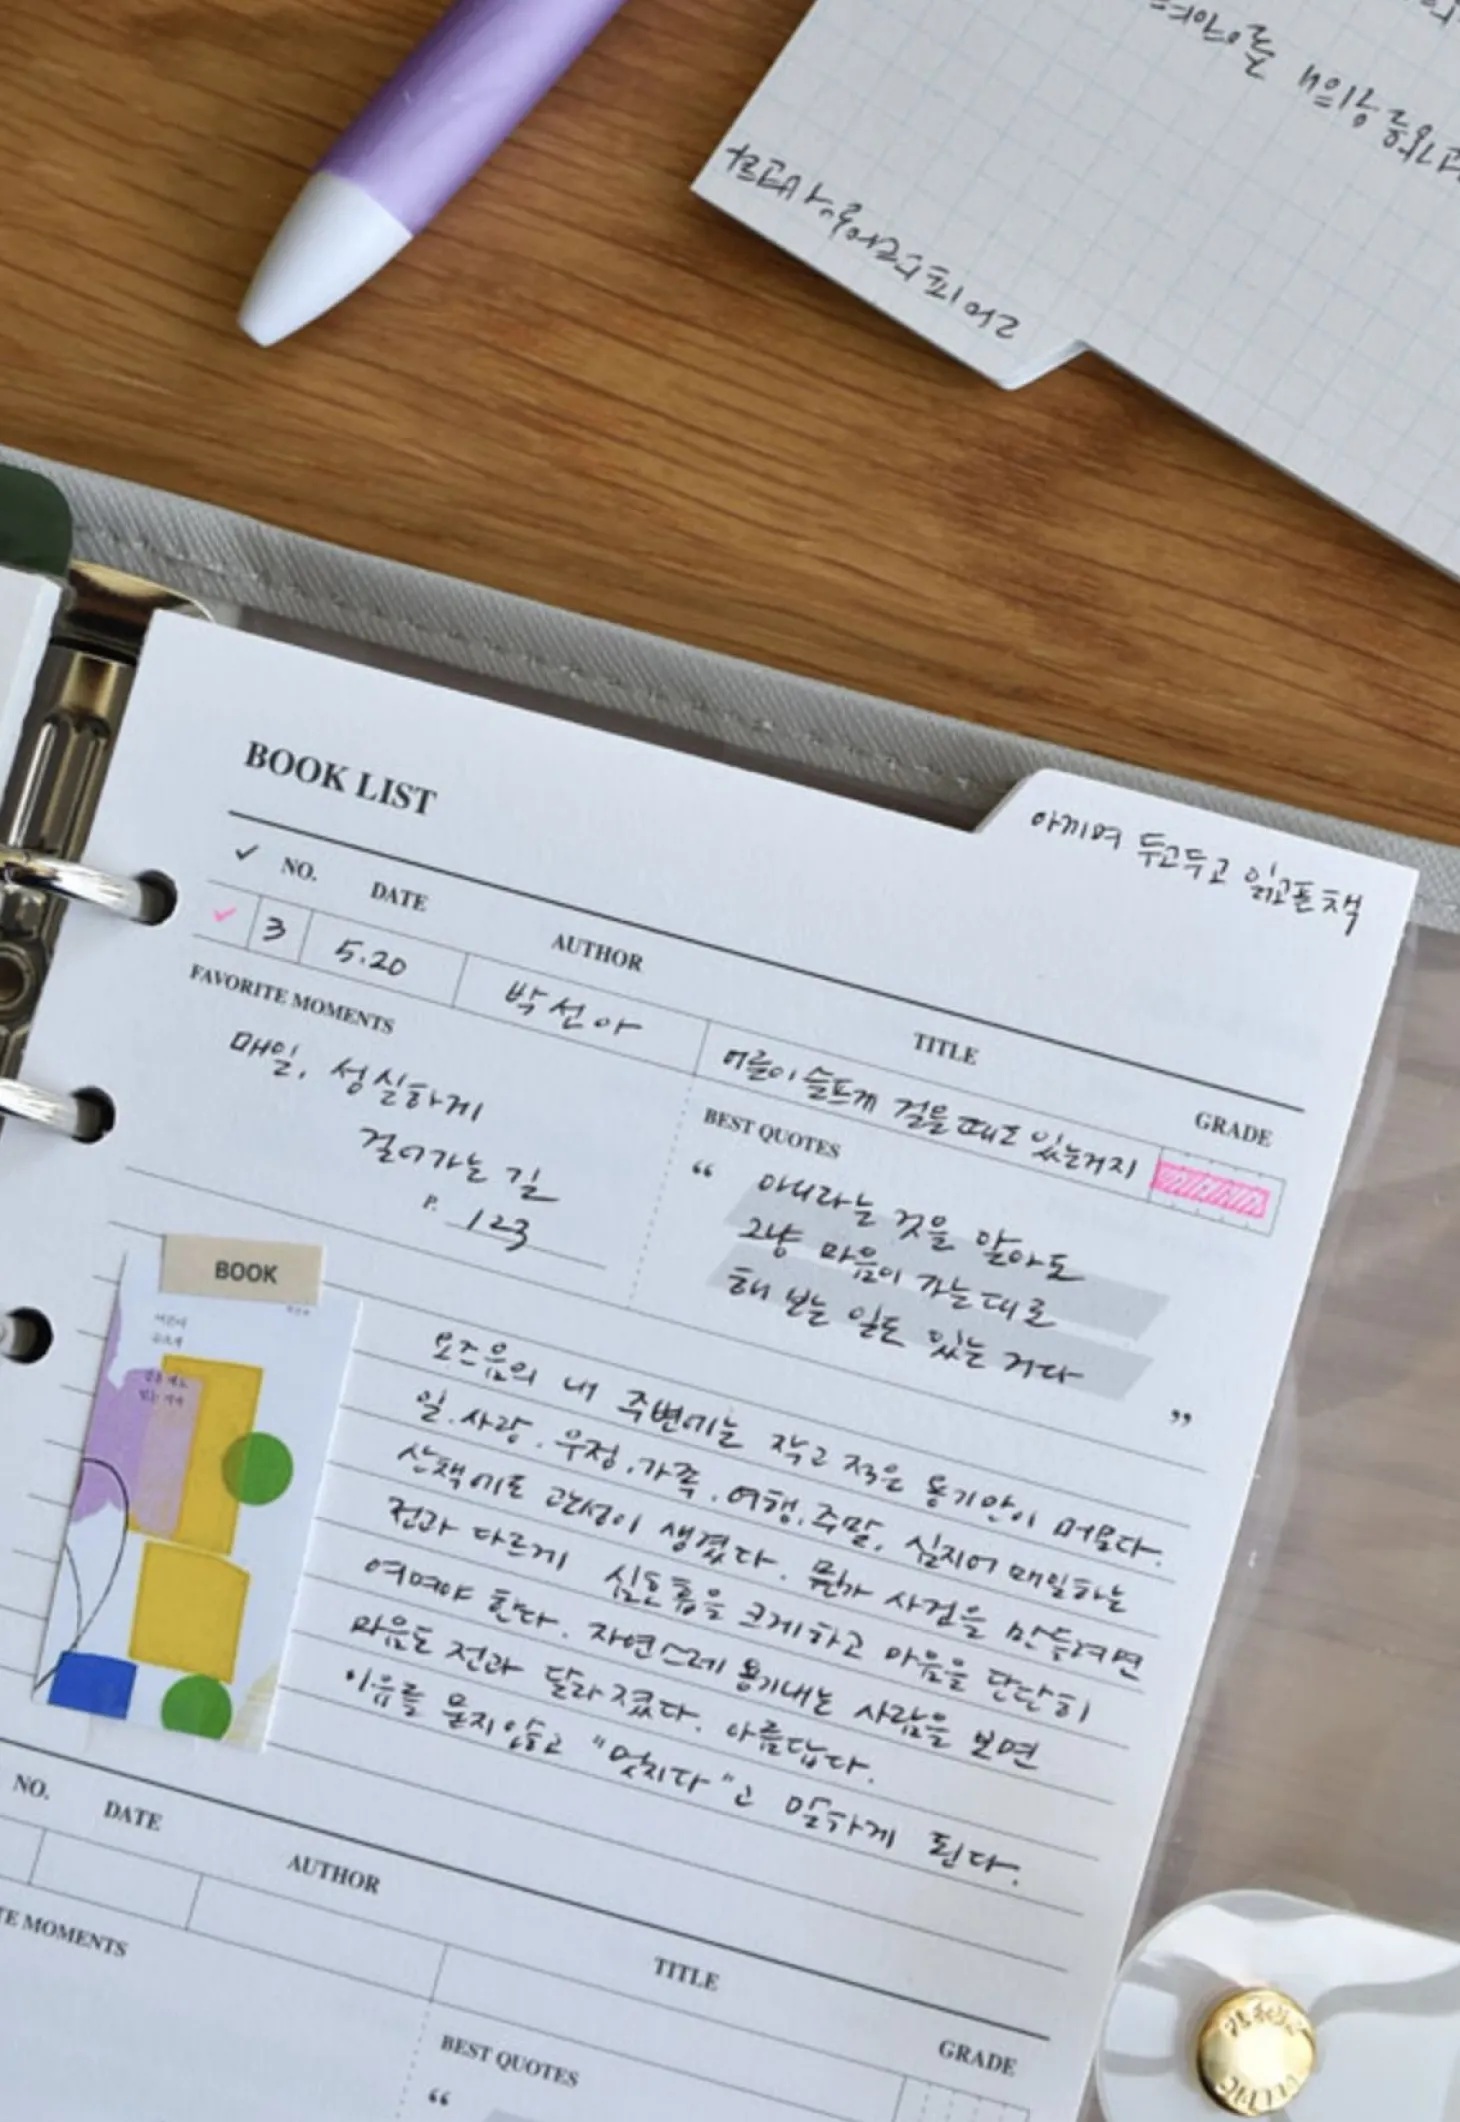 아끼며 두고두고 읽고픈 책
BOOK LIST
✓ NO. DATE AUTHOR TITLE GRADE
✓ 3 5.20 박선아 어른이 슬프게 걸을 때도 있는거지
FAVORITE MOMENTS
매일, 성실하게
걸어가는 길
P. 123
BEST QUOTES
“ 아니라는 것을 알아도
그냥 마음이 가는대로
해 보는 일도 있는 거다
”
BOOK
요즈음의 내 주변에는 작고 적은 용기만이 머문다.
일.사랑.우정.가족.여행.주말, 심지어 매일하는
산책에도 관성이 생겼다. 뭔가 사건을 만들려면
전과 다르게 심호흡을 크게하고 마음을 단단히
여며야 한다. 자연스레 용기내는 사람을 보면
마음도 전과 달라졌다. 아름답다.
이유를 묻지않고 "멋지다"고 말하게 된다.
NO. DATE AUTHOR TITLE GRADE
TE MOMENTS
BEST QUOTES
“